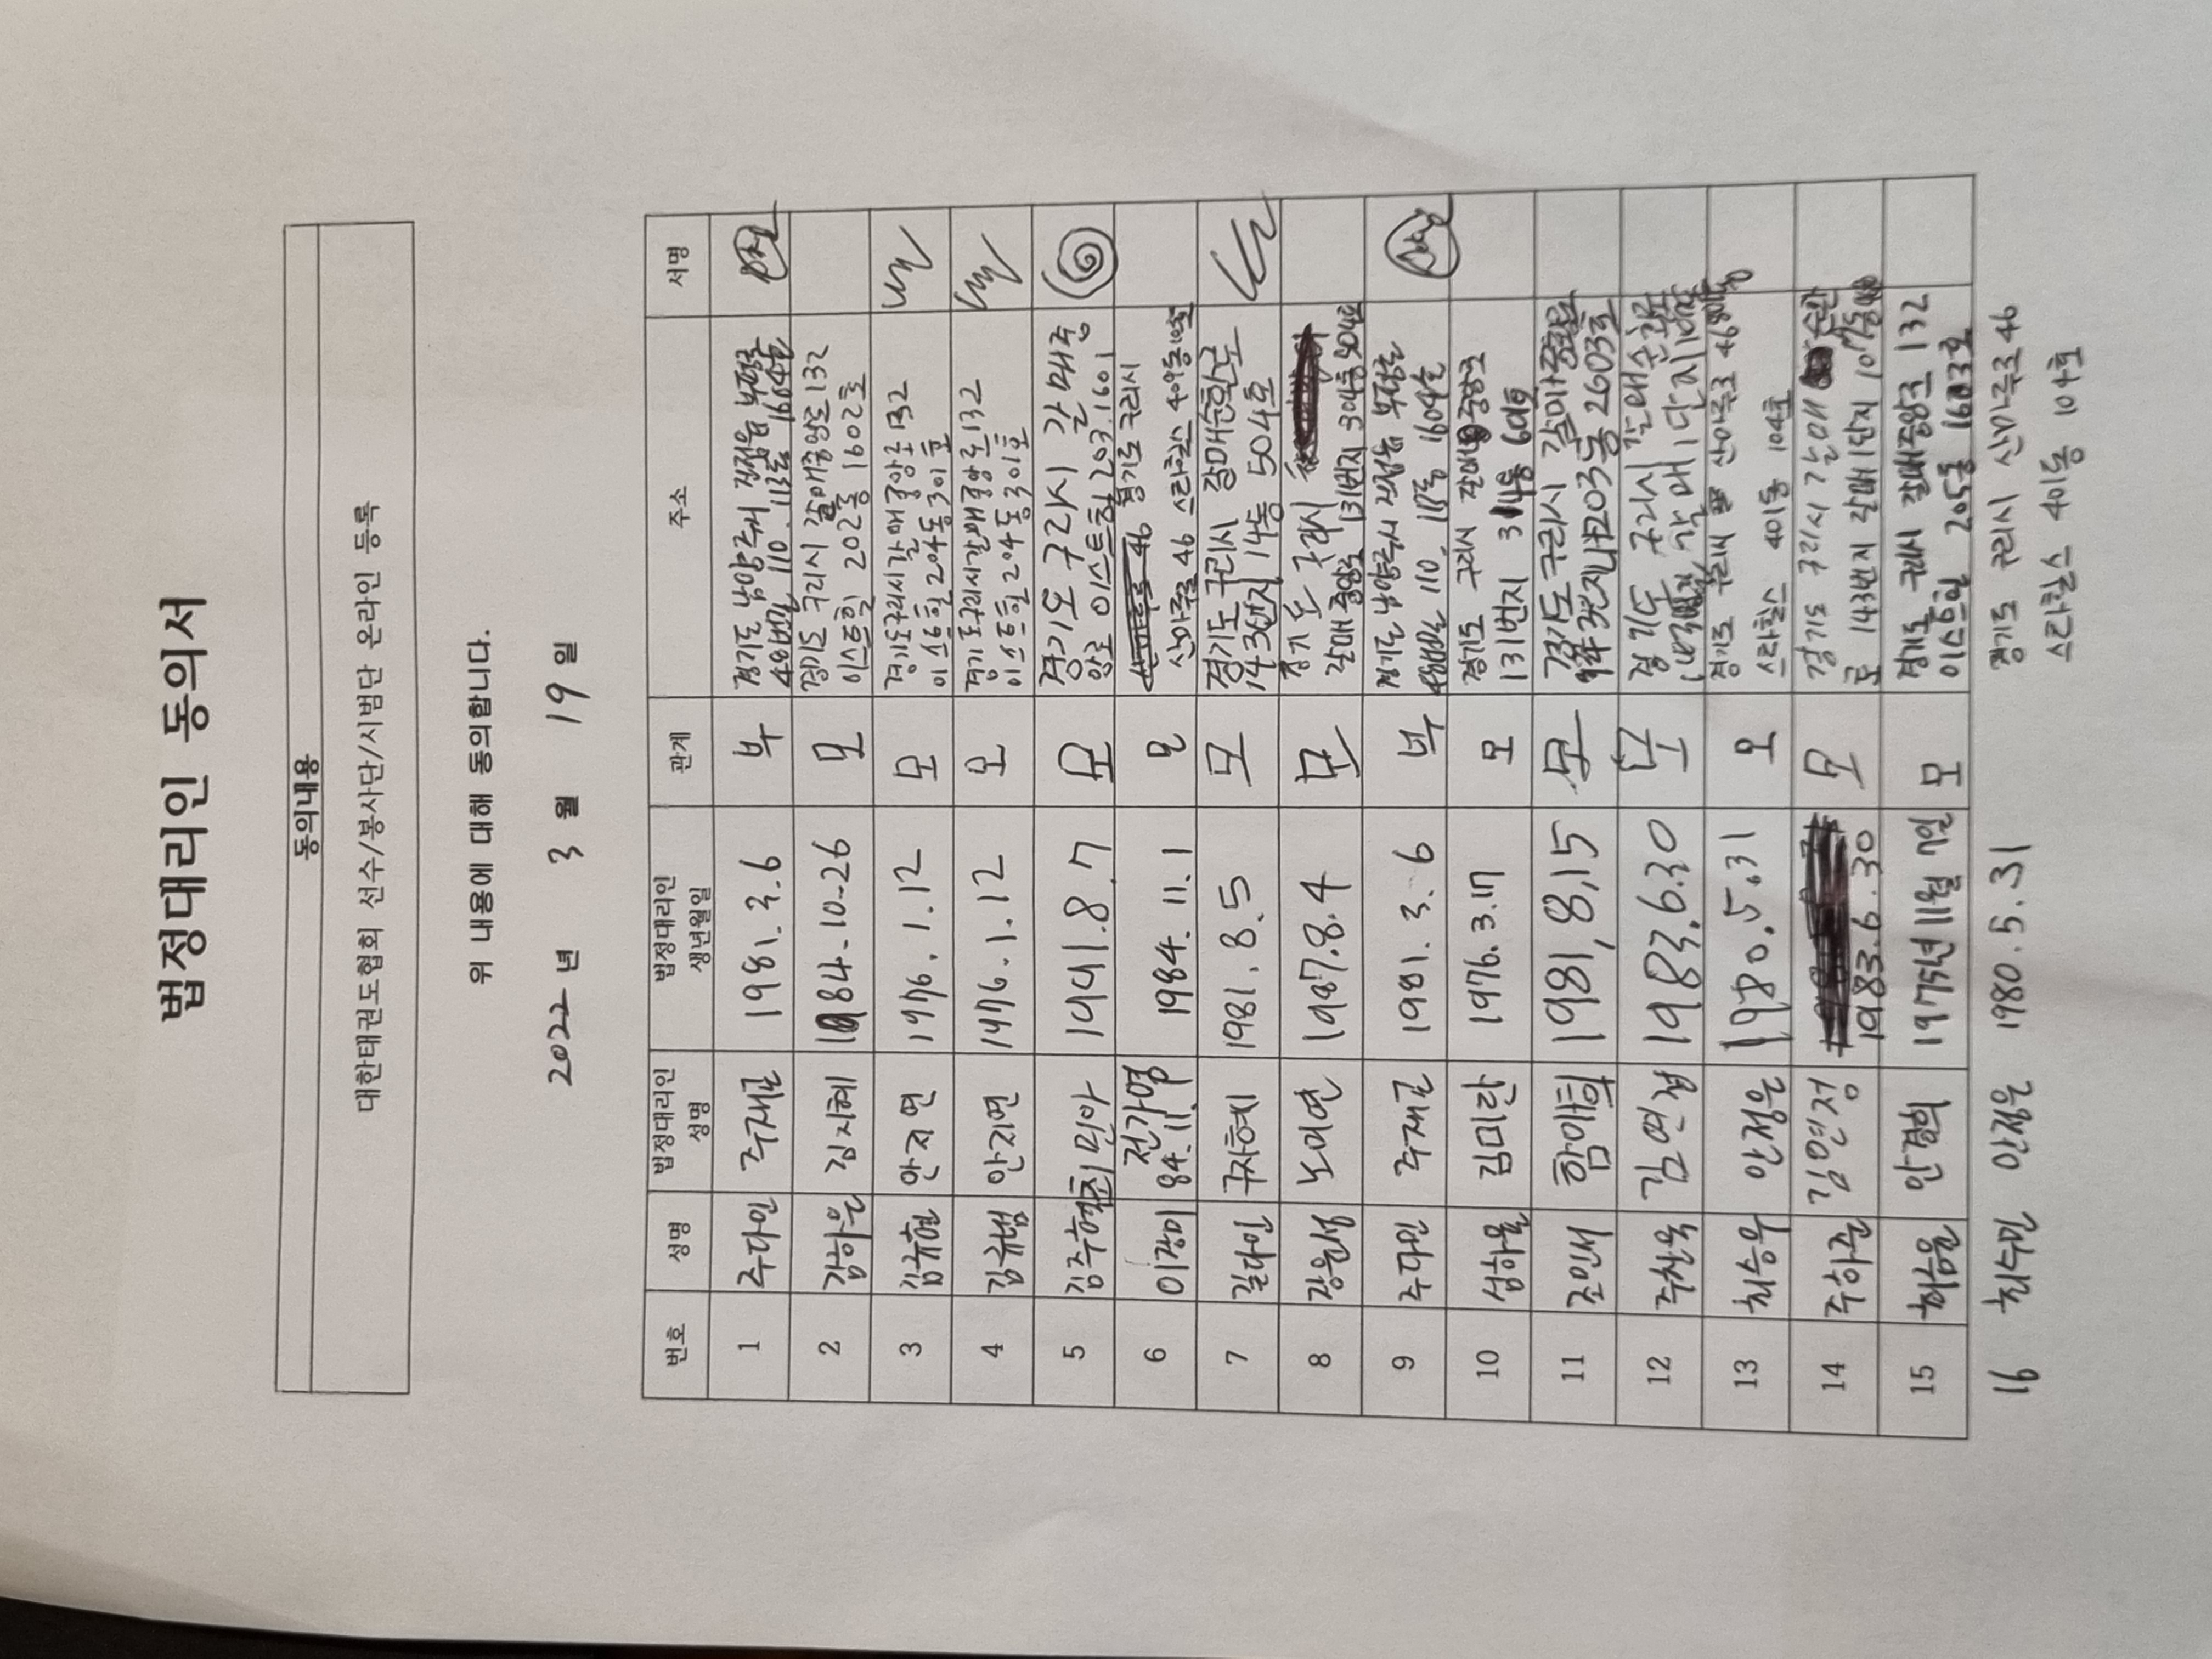 법정대리인 동의서
동의내용
대한태권도협회 선수/봉사단/시범단 온라인 등록
위 내용에 대해 동의합니다.
2022 년 3 월 19 일
번호 성명 법정대리인 성명 법정대리인 생년월일 관계 주소 서명
1 주다인 주재근 1981. 3. 6 부 경기도 남양주시 진접읍 부평로
48번길 110. 113동 1604호
2 김하은 김지혜 1984-10-26 모 경기도 구리시 갈매중앙로 132
이스트힐 202동 1602호
3 김규현 안지연 1976. 1. 12 모 경기도구리시갈매중앙로 132
이스트힐 204동 301호
4 안지연 1976. 1. 12 모 경기도구리시갈매중앙로 132
이스트힐 204동 301호
5 김주현 최민아 1991. 8. 7 모 경기도 구리시 갈매중
앙로 이스트힐 203. 1601
6 이경미 전가영 84. 11. 1984. 11. 1 모 46 경기도 구리시
신마주로 46 스타힐스 409동
7 길다인 1981. 8. 5 모 경기도 구리시 갈매순환로
143번지 14동 504호
8 장윤성 노미연 1987. 8. 4 모 경기도 구리시
갈매중앙로 131번지 304동 904호
9 주다민 주재근 1981. 3. 6 부 경기도 남양주시 진접읍 부평로
48번길 110, 113동 1604호
10 섭하율 김미란 1976. 3. 17 모 경기도 구리시 갈매중앙로
131번지 314동 601호
11 조민서 함미희 1981, 8, 15 모 경기도 구리시 갈매중앙로
203동 2603호
12 주찬욱 김연정 1983. 6. 30 모 경기도 구리시 갈매순환로
갈매1단지
13 최승우 안정은 1980. 5. 31 모 경기도 구리시 산마루로 46
스타힐스 401동 104호
14 주하준 김연정 1983. 6. 30 모 경기도 구리시 갈매 순환
로 143번지 갈매1단지 107동
15 허윤 안경희 1975년 11월 7일 모 경기도 구리시 갈매중앙로 132
이스트힐 205동 1603호
16 최수민 안정은 1980. 5. 31 경기도 구리시 산마루로 46
스타힐스 401동 104호